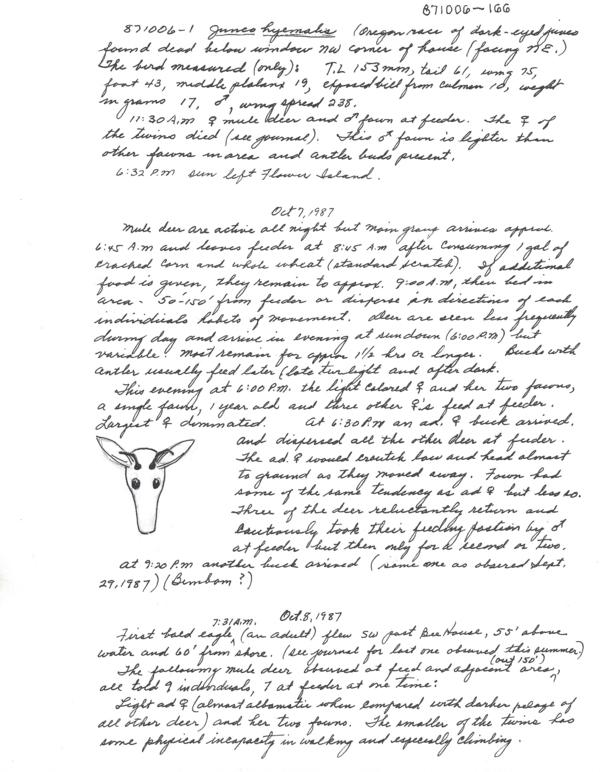 871006-166
871006-1 Junco hyemalis (Oregon race of dark-eyed junco
found dead below window NW corner of house (facing NE.)
The bird measured (only): T.L 153 mm, tail 61, wing 75,
foot 43, middle phalanx 19, exposed bill from culmen 10, weight
in grams 17, ♂, wing spread 238.
11:30 A.m ♀ mule deer and ♂ fawn at feeder. The ♀ of
the twins died (see journal). This ♂ fawn is lighter than
other fawns in area and antler buds present.
6:32 P.m sun left Flower Island.
Oct 7, 1987
Mule deer are active all night but main group arrives approx.
6:45 A.m and leaves feeder at 8:45 A.m after consuming 1 gal of
cracked corn and whole wheat (standard scratch). If additional
food is given, they remain to approx. 9:00 A.m, then bed in
area - 50-150' from feeder or disperse in directions of each
individuals habits of movement. Deer are seen less frequently
during day and arrive in evening at sundown (6:00 P.m) but
variable. Most remain for approx 1 1/2 hrs or longer. Bucks with
antler usually feed later (late twilight and after dark.
This evening at 6:00 P.m. the light colored ♀ and her two fawns,
a single fawn, 1 year old and three other ♀'s feed at feeder.
Largest ♀ dominated. At 6:30 P.m an ad. ♀ buck arrived,
and dispersed all the other deer at feeder.
The ad. ♀ would crouch low and head almost
to ground as they moved away. Fawn had
some of the same tendency as ad ♀ but less so.
Three of the deer reluctantly return and
cautiously took their feeding position by ♂
at feeder but then only for a second or two.
at 9:20 P.m another buck arrived (same one as obsered Sept.
29, 1987) (Bimbom?)
Oct. 8, 1987
7:31 A.m.
First bald eagle (an adult) flew SW past Bee House, 55' above
water and 60' from shore. (see journal for last one observed this summer)
(out 150')
The following mule deer observed at feed and adjacent area,
all told 9 individuals, 7 at feeder at one time:
Light ad ♀ (almost albamstic when compared with darker pelage of
all other deer) and her two fawns. The smaller of the twins has
some physical incapacity in walking and especially climbing.